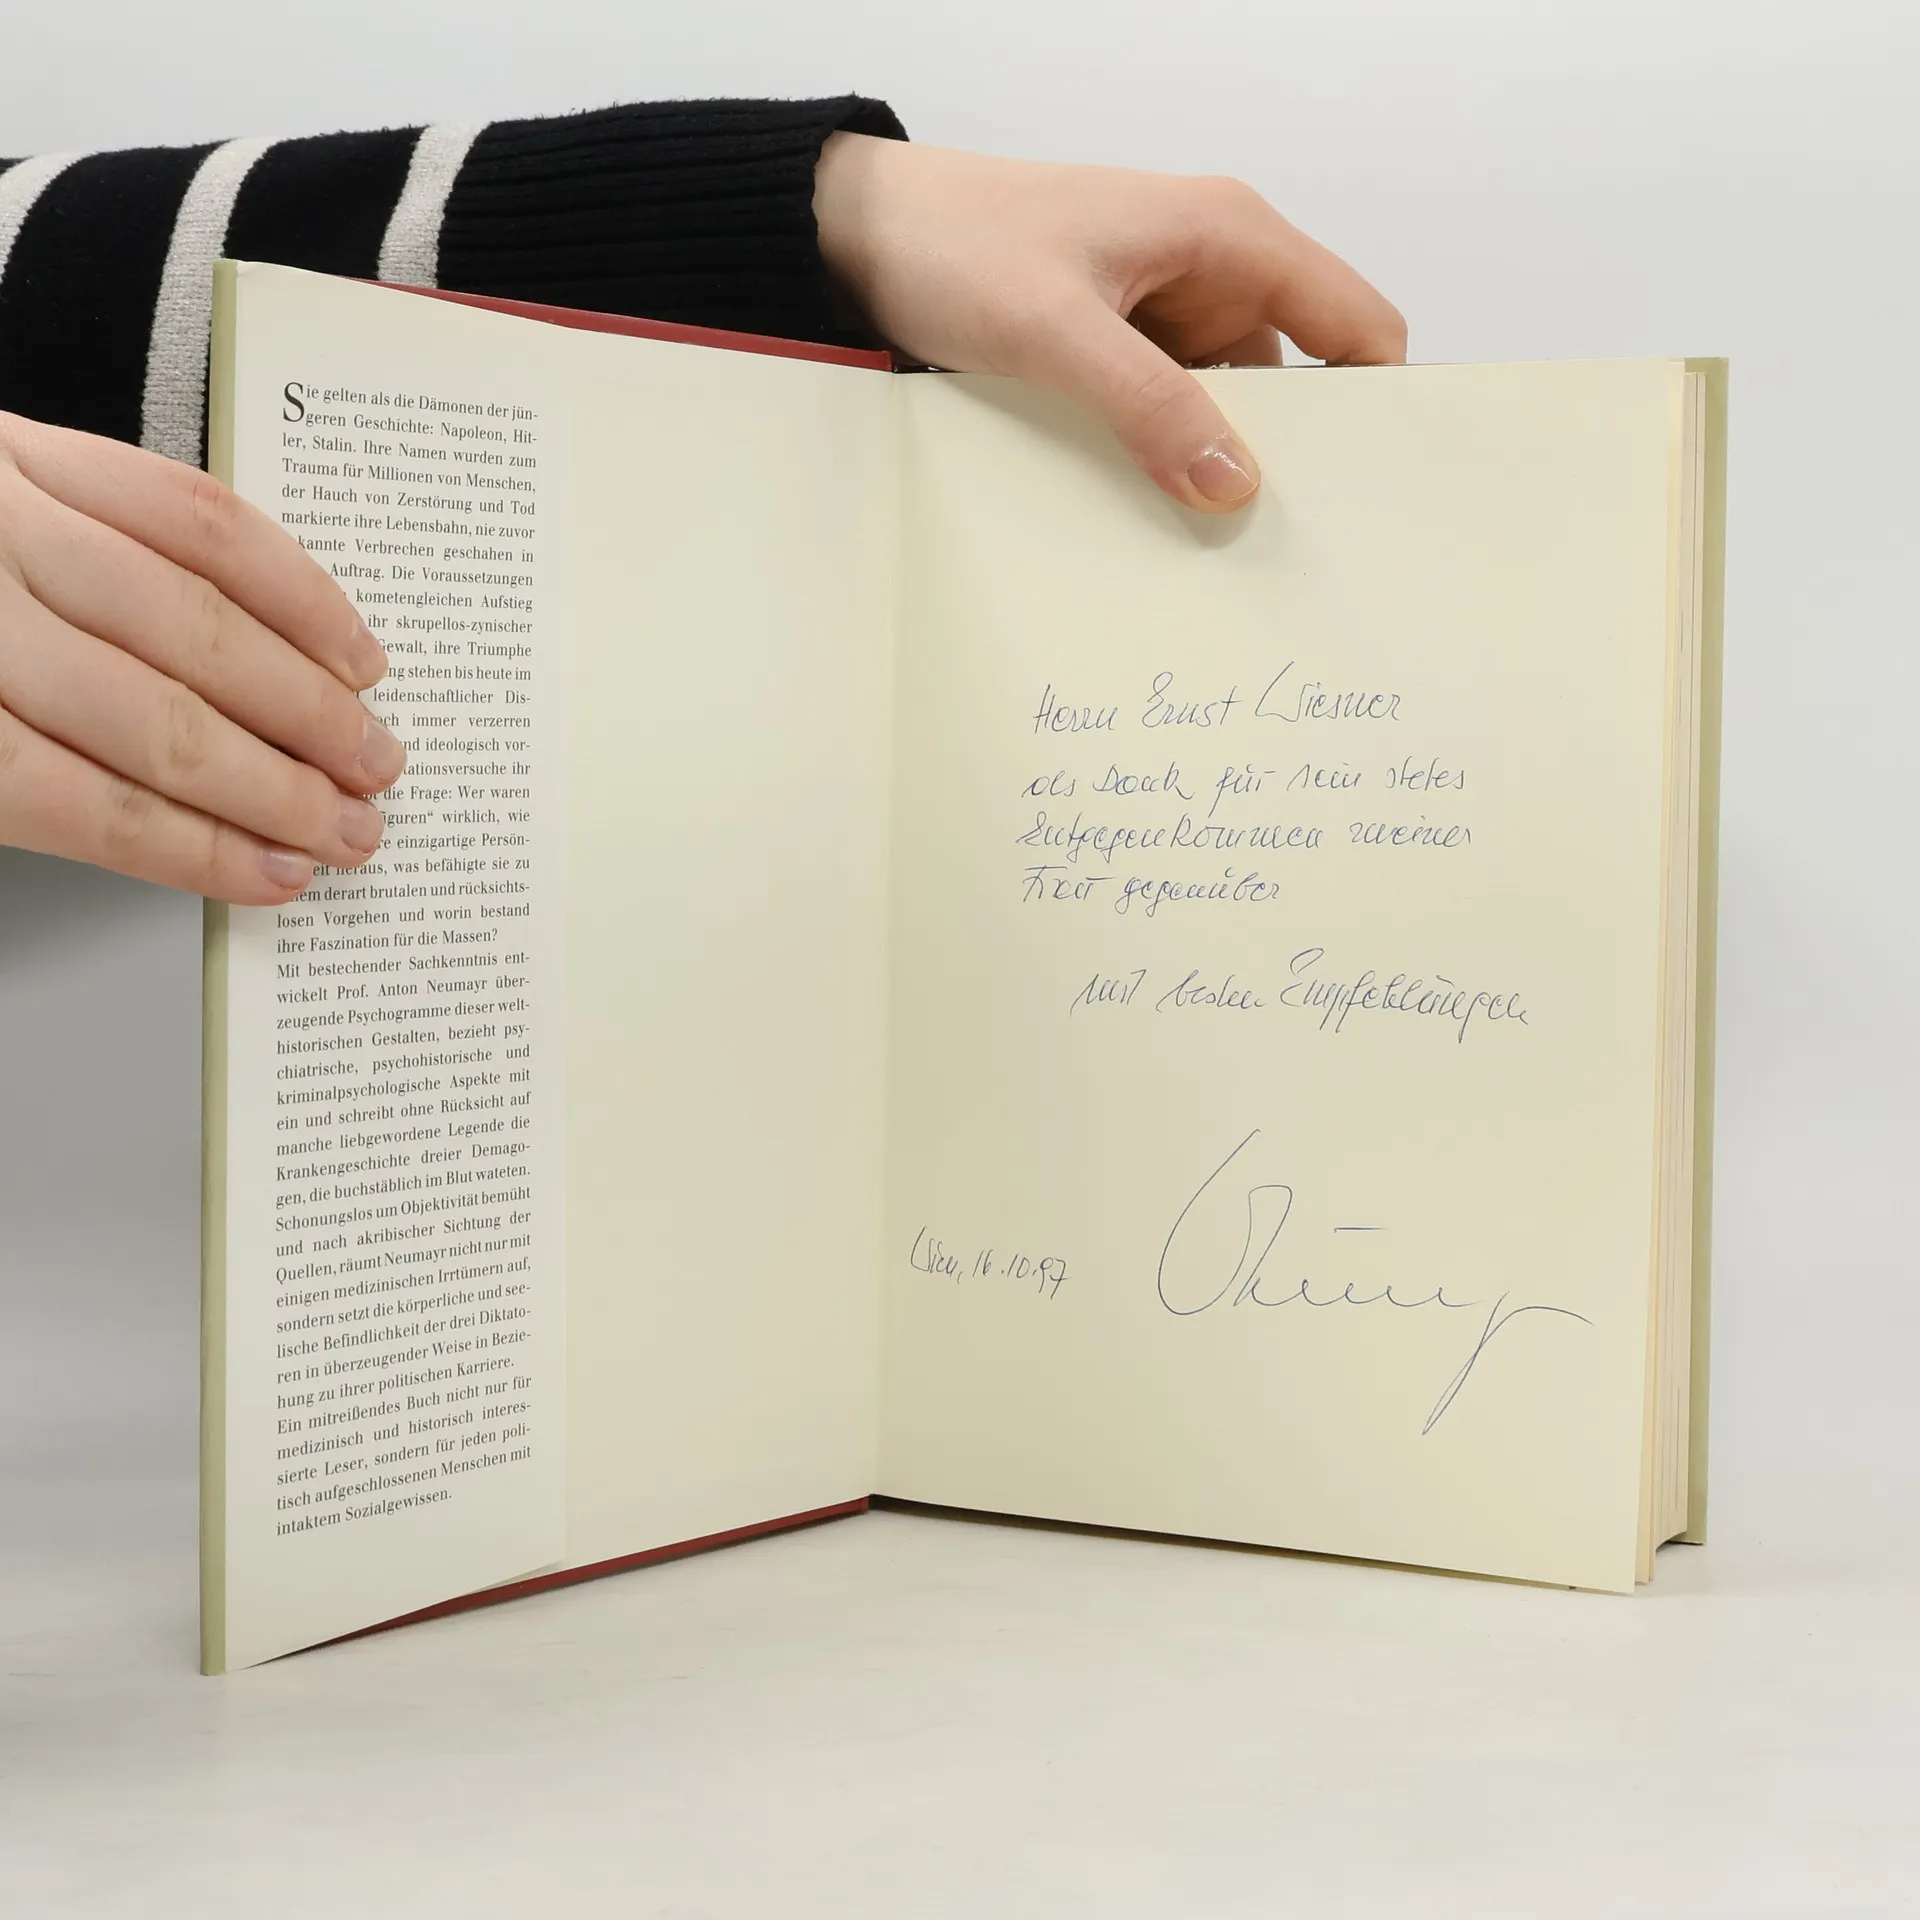 Sie gelten als die Dämonen der jün-
geren Geschichte: Napoleon, Hit-
ler, Stalin. Ihre Namen wurden zum
Trauma für Millionen von Menschen,
der Hauch von Zerstörung und Tod
markierte ihre Lebensbahn, nie zuvor
kannte Verbrechen geschahen in
Auftrag. Die Voraussetzungen
kometengleichen Aufstieg
ihr skrupellos-zynischer
Gewalt, ihre Triumphe
ng stehen bis heute im
leidenschaftlicher Dis-
och immer verzerren
nd ideologisch vor-
tationsversuche ihr
die Frage: Wer waren
iguren“ wirklich, wie
re einzigartige Persön-
eit heraus, was befähigte sie zu
nem derart brutalen und rücksichts-
losen Vorgehen und worin bestand
ihre Faszination für die Massen?
Mit bestechender Sachkenntnis ent-
wickelt Prof. Anton Neumayr über-
zeugende Psychogramme dieser welt-
historischen Gestalten, bezieht psy-
chiatrische, psychohistorische und
kriminalpsychologische Aspekte mit
ein und schreibt ohne Rücksicht auf
manche liebgewordene Legende die
Krankengeschichte dreier Demago-
gen, die buchstäblich im Blut wateten.
Schonungslos um Objektivität bemüht
und nach akribischer Sichtung der
Quellen, räumt Neumayr nicht nur mit
einigen medizinischen Irrtümern auf,
sondern setzt die körperliche und see-
lische Befindlichkeit der drei Diktato-
ren in überzeugender Weise in Bezie-
hung zu ihrer politischen Karriere.
Ein mitreißendes Buch nicht nur für
medizinisch und historisch interes-
sierte Leser, sondern für jeden poli-
tisch aufgeschlossenen Menschen mit
intaktem Sozialgewissen.
Herrn Ernst Wiesner
als Dank für sein stetes
Entgegenkommen meiner
Frau gegenüber
mit besten Empfehlungen
Wien, 16.10.97